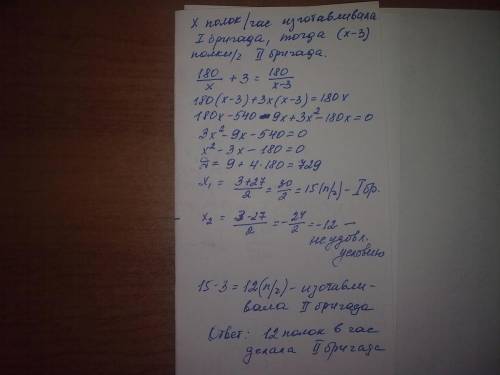 X полок/час изготавливала
I бригада, тогда (x-3)
полки/ч II бригада.
180/x + 3 = 180/x-3
180(x-3)+3x(x-3)=180x
180x-540-9x+3x²-180x=0
3x²-9x-540=0
x²-3x-180=0
D=9+4·180=729
x₁ = 3+27/2 = 30/2 = 15(п/ч)-I бр.
x₂ = 3-27/2 = -24/2 = -12 -
не удовл.
условию
15-3=12(п/ч)-изготавли-
вала II бригада
Ответ: 12 полок в час
делала II бригада